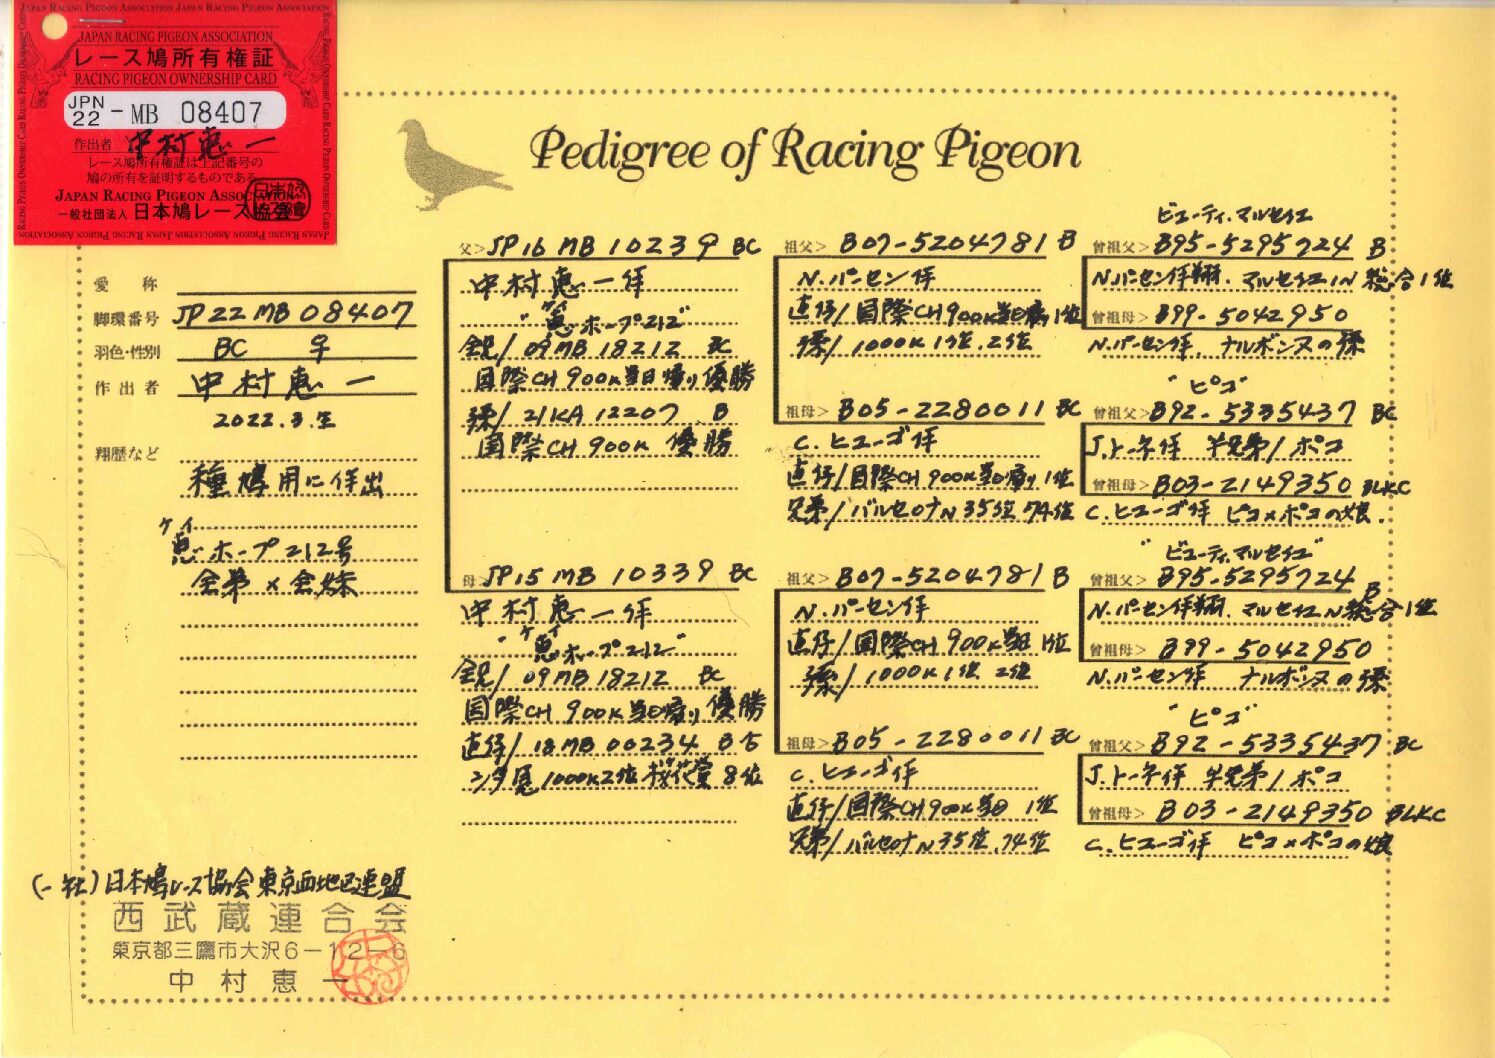 JAPAN RACING PIGEON ASSOCIATION JAPAN RACING PIGEON ASSOCIATION
JAPAN RACING PIGEON ASSOCIATION
レース鳩所有権証
RACING PIGEON OWNERSHIP CARD
JPN 22 - MB 08407
作出者 中村惠一
レース鳩所有権証は上記番号の
鳩の所有を証明するものである。
JAPAN RACING PIGEON ASSOCIATION
一般社団法人 日本鳩レース協会
Pedigree of Racing Pigeon
愛称
脚環番号 JP22MB08407
羽色・性別 BC ♀
作出者 中村惠一
2022.3.生
翔歴など
種鳩用に作出
ケイ
惠ホープ212号
全弟×全妹
父> JP16 MB 10239 BC
中村惠一作
ケイ
"惠ホープ212"
全兄/ 09MB 18212 BC
国際CH 900K当日帰り優勝
孫/ 21KA 12207 B
国際CH 900K 優勝
母> JP15 MB 10339 BC
中村惠一作
ケイ
"惠ホープ212"
全兄/ 09MB 18212 BC
国際CH 900K当日帰り優勝
直仔/ 18MB 00234 B ♂
1000K2位 桜花賞 8位
祖父> B07-5204781 B
N.パーセン作
直仔/国際CH900K当日帰り1位
孫/1000K1位.2位
祖母> B05-2280011 BC
C.ヒューゴ作
直仔/国際CH900K当日帰り1位
兄弟/バルセロナN35位 74位
祖父> B07-5204781 B
N.パーセン作
直仔/国際CH900K当日 1位
孫/1000K1位 2位
祖母> B05-2280011 BC
C.ヒューゴ作
直仔/国際CH900K当日 1位
兄弟/バルセロナN35位.74位
ビューティ.マルセイユ
曾祖父> B95-5295724 B
N.パーセン作翔.マルセイユN総合1位
曾祖母> B99-5042950
N.パーセン作.ナルボンヌの孫
"ピコ"
曾祖父> B92-5335437 BC
J.トーネ作 半兄弟/ポコ
曾祖母> B03-2149350 BLKC
C.ヒューゴ作 ピコ×ポコの娘.
"ビューティ.マルセイユ"
曾祖父> B95-5295724 B
N.パーセン作翔.マルセイユN総合1位
曾祖母> B99-5042950
N.パーセン作 ナルボンヌの孫
"ピコ"
曾祖父> B92-5335437 BC
J.トーネ作 半兄弟/ポコ
曾祖母> B03-2149350 BLKC
C.ヒューゴ作 ピコ×ポコの娘
(一社)日本鳩レース協会東京西地区連盟
西武蔵連合会
東京都三鷹市大沢6-12-6
中村惠一